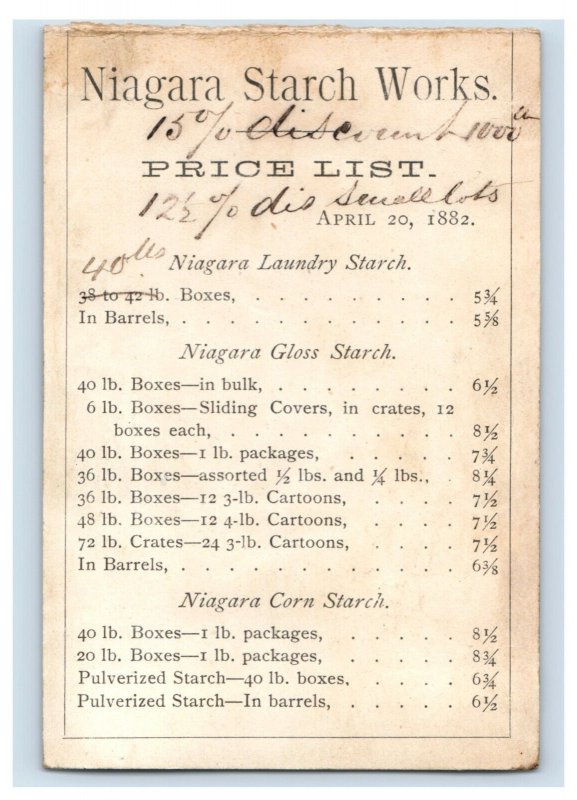 Niagara Starch Works.
15% discount 1000 lb
PRICE LIST.
12½% dis small lots
APRIL 20, 1882.
40 lbs
Niagara Laundry Starch.
38 to 42 lb. Boxes, . . . . . . . . . . 5¾
In Barrels, . . . . . . . . . . . . . 5⅝
Niagara Gloss Starch.
40 lb. Boxes—in bulk, . . . . . . . . 6½
6 lb. Boxes—Sliding Covers, in crates, 12
boxes each, . . . . . . . . . . 8½
40 lb. Boxes—1 lb. packages, . . . . . 7¾
36 lb. Boxes—assorted ½ lbs. and ¼ lbs., . 8¼
36 lb. Boxes—12 3-lb. Cartoons, . . . . 7½
48 lb. Boxes—12 4-lb. Cartoons, . . . . 7½
72 lb. Crates—24 3-lb. Cartoons, . . . . 7½
In Barrels, . . . . . . . . . . . . 6⅜
Niagara Corn Starch.
40 lb. Boxes—1 lb. packages, . . . . . 8½
20 lb. Boxes—1 lb. packages, . . . . . 8¾
Pulverized Starch—40 lb. boxes, . . . . 6¾
Pulverized Starch—In barrels, . . . . . 6½